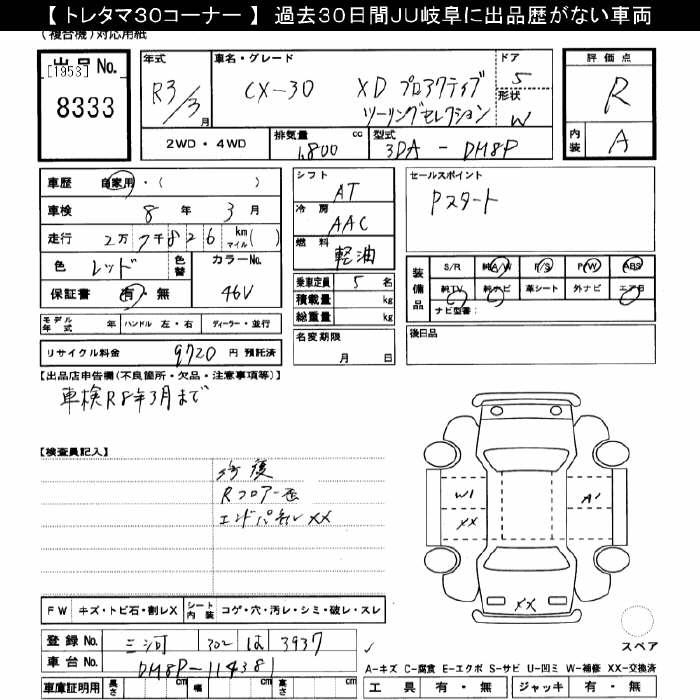 【トレタマ30コーナー】 過去30日間JU岐阜に出品歴がない車両
(複合機)対応用紙
出品No. [1953] 8333
年式 R3/3月
車名・グレード CX-30 XD プロアクティブ
ツーリングセレクション
ドア 5
形状 W
評価点 R
内装 A
2WD・4WD
排気量 1,800 cc
型式 3DA-DM8P
車歴 自家用・( )
車検 8年 3月
走行 2万7千826 km マイル( )
色 レッド 色替
カラーNo. 46V
保証書 有・無
モデル年式 年 ハンドル 左・右 ディーラー・並行
リサイクル料金 9720 円 預託済
シフト AT
冷房 AAC
燃料 軽油
乗車定員 5 名
積載量 kg
総重量 kg
名変期限 月 日
セールスポイント
Pスタート
装備品 S/R 純A/W P/S P/W ABS
純TV 純ナビ 革シート 外ナビ エアB
ナビ型番:
後日品
【出品店申告欄(不良箇所・欠品・注意事項等)】
車検R8年3月まで
【検査員記入】
修復
Rフロアー歪
エンドパネルXX
W1
XX
A1
XX
スペア
FW キズ・トビ石・割レX シート内装 コゲ・穴・汚レ・シミ・破レ・スレ
登録No. 三河 302 は 3937
車台No. DM8P-114381
車庫証明用 長さ cm 幅 cm 高さ cm
A-キズ C-腐食 E-エクボ S-サビ U-凹ミ W-補修 XX-交換済
工具 有・無 ジャッキ 有・無